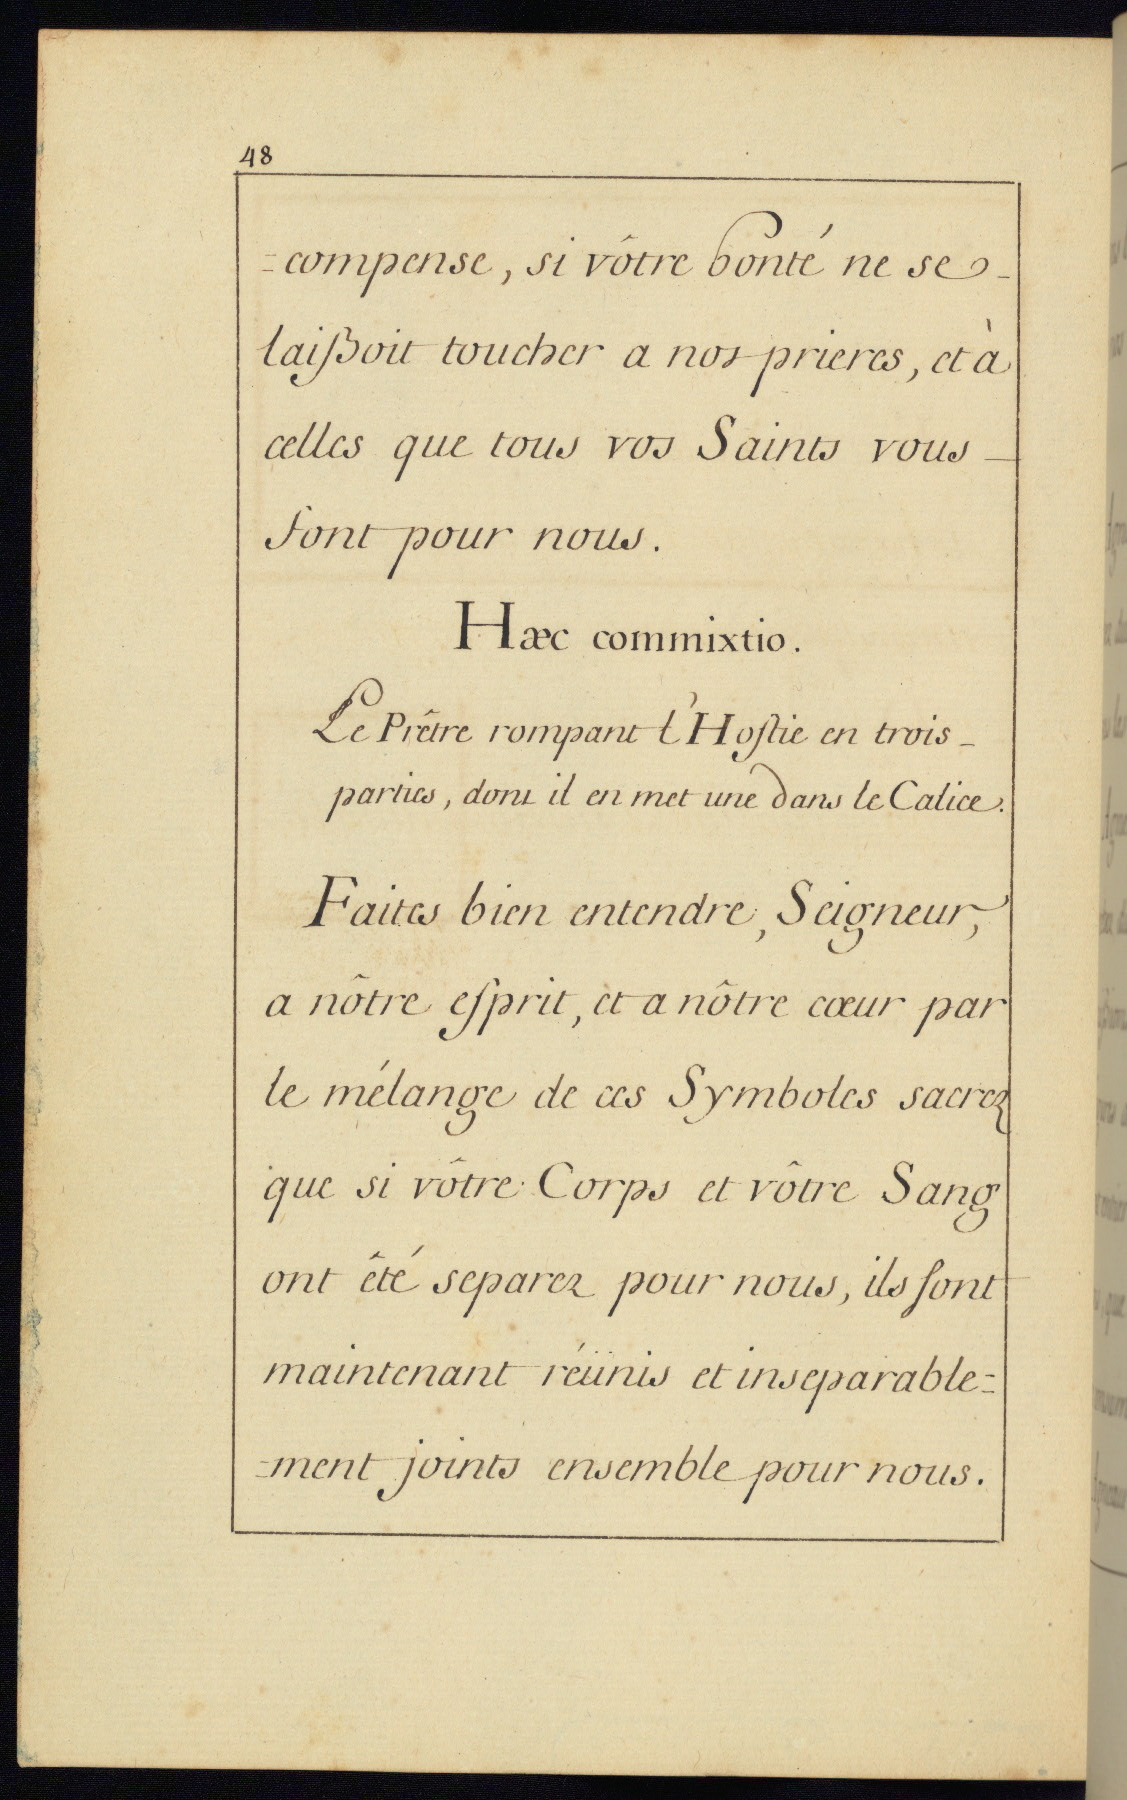 48
=compense, si vôtre bonté ne se-
laißoit toucher a nos prieres, et à
celles que tous vos Saints vous -
font pour nous.
Hæc commixtio.
Le Prêtre rompant l'Hoſtie en trois-
parties, dont il en met une dans le Calice.
Faites bien entendre, Seigneur,
a nôtre eſprit, et a nôtre cœur par
le mélange de ces Symboles sacrez
que si vôtre Corps et vôtre Sang
ont êté separez pour nous, ils ſont
maintenant réünis et inseparable=
=ment joints ensemble pour nous.